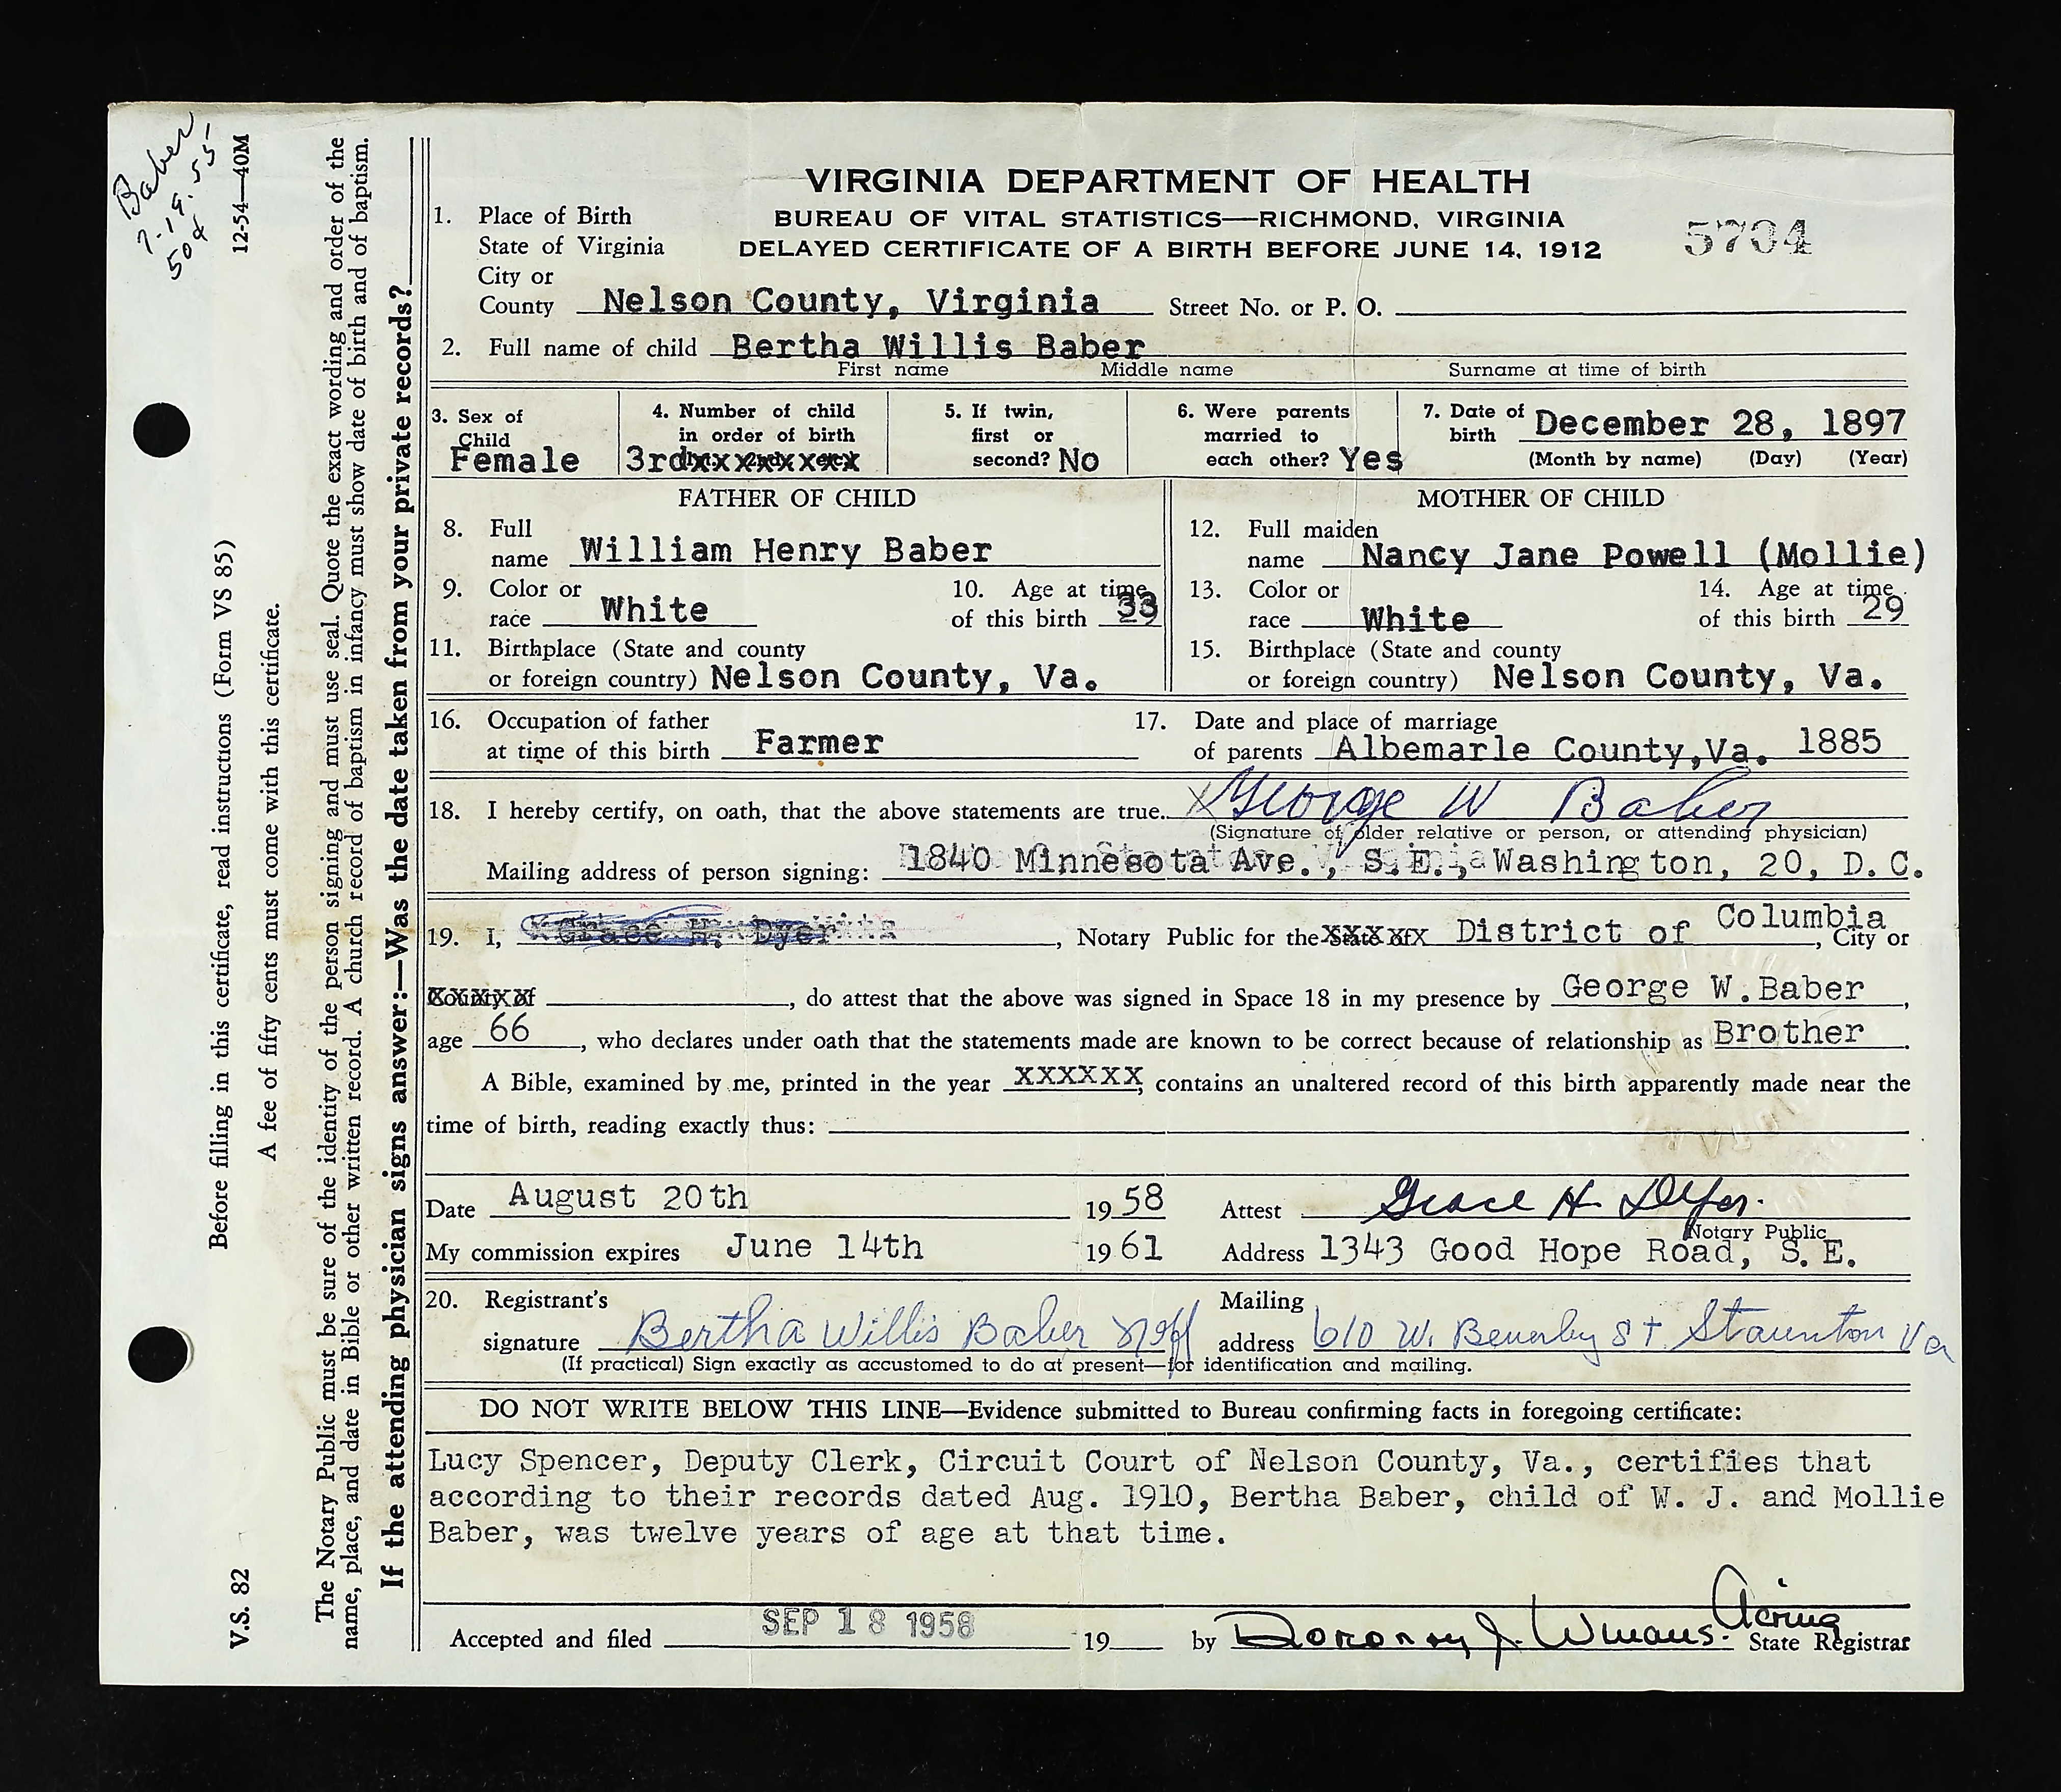 Baber
7-19-55
50¢
12-54—40M
V.S. 82
Before filling in this certificate, read instructions (Form VS 85)
A fee of fifty cents must come with this certificate.
The Notary Public must be sure of the identity of the person signing and must use seal. Quote the exact wording and order of the
name, place, and date in Bible or other written record. A church record of baptism in infancy must show date of birth and of baptism.
If the attending physician signs answer:—Was the date taken from your private records?
VIRGINIA DEPARTMENT OF HEALTH
BUREAU OF VITAL STATISTICS—RICHMOND, VIRGINIA
DELAYED CERTIFICATE OF A BIRTH BEFORE JUNE 14, 1912
5704
1. Place of Birth
State of Virginia
City or
County Nelson County, Virginia Street No. or P. O.
2. Full name of child Bertha Willis Baber
First name Middle name Surname at time of birth
3. Sex of
Child
Female
4. Number of child
in order of birth
3rdxxxxxxxxx
5. If twin,
first or
second? No
6. Were parents
married to
each other? Yes
7. Date of
birth December 28, 1897
(Month by name) (Day) (Year)
FATHER OF CHILD
8. Full
name William Henry Baber
9. Color or
race White
10. Age at time
of this birth 33
11. Birthplace (State and county
or foreign country) Nelson County, Va.
MOTHER OF CHILD
12. Full maiden
name Nancy Jane Powell (Mollie)
13. Color or
race White
14. Age at time
of this birth 29
15. Birthplace (State and county
or foreign country) Nelson County, Va.
16. Occupation of father
at time of this birth Farmer
17. Date and place of marriage
of parents Albemarle County,Va. 1885
18. I hereby certify, on oath, that the above statements are true. X George W Baber
(Signature of older relative or person, or attending physician)
Mailing address of person signing: 1840 Minnesota Ave., S.E., Washington, 20, D.C.
19. I, Grace H. Dyer, Notary Public for the State of District of Columbia, City or
County of , do attest that the above was signed in Space 18 in my presence by George W.Baber,
age 66, who declares under oath that the statements made are known to be correct because of relationship as Brother.
A Bible, examined by me, printed in the year XXXXXX, contains an unaltered record of this birth apparently made near the
time of birth, reading exactly thus:
Date August 20th 1958 Attest Grace H. Dyer.
Notary Public
My commission expires June 14th 1961 Address 1343 Good Hope Road, S.E.
20. Registrant's
signature Bertha Willis Baber Neff
Mailing
address 610 W. Beverley St. Staunton Va
(If practical) Sign exactly as accustomed to do at present—for identification and mailing.
DO NOT WRITE BELOW THIS LINE—Evidence submitted to Bureau confirming facts in foregoing certificate:
Lucy Spencer, Deputy Clerk, Circuit Court of Nelson County, Va., certifies that
according to their records dated Aug. 1910, Bertha Baber, child of W. J. and Mollie
Baber, was twelve years of age at that time.
Accepted and filed SEP 18 1958 19 by Dorothy J. Winans. Acting
State Registrar